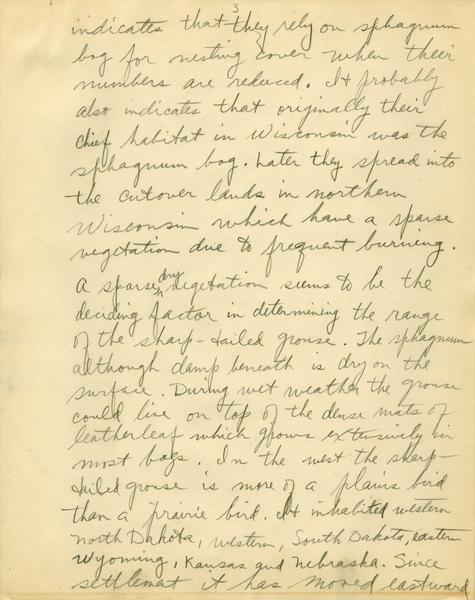 3
indicates that they rely on sphagnum
bog for nesting cover when their
numbers are reduced. It probably
also indicates that originally their
chief habitat in Wisconsin was the
sphagnum bog. Later they spread into
the cutover lands in northern
Wisconsin which have a sparse
vegetation due to frequent burning.
A sparse dry vegetation seems to be the
deciding factor in determining the range
of the sharp-tailed grouse. The sphagnum
although damp beneath is dry on the
surface. During wet weather the grouse
could live on top of the dense mats of
leatherleaf which grows extensively in
most bogs. In the west the sharp-
tailed grouse is more of a plains bird
than a prairie bird. It inhabited western
North Dakota, western, South Dakota, eastern
Wyoming, Kansas and Nebraska. Since
settlement it has moved eastward